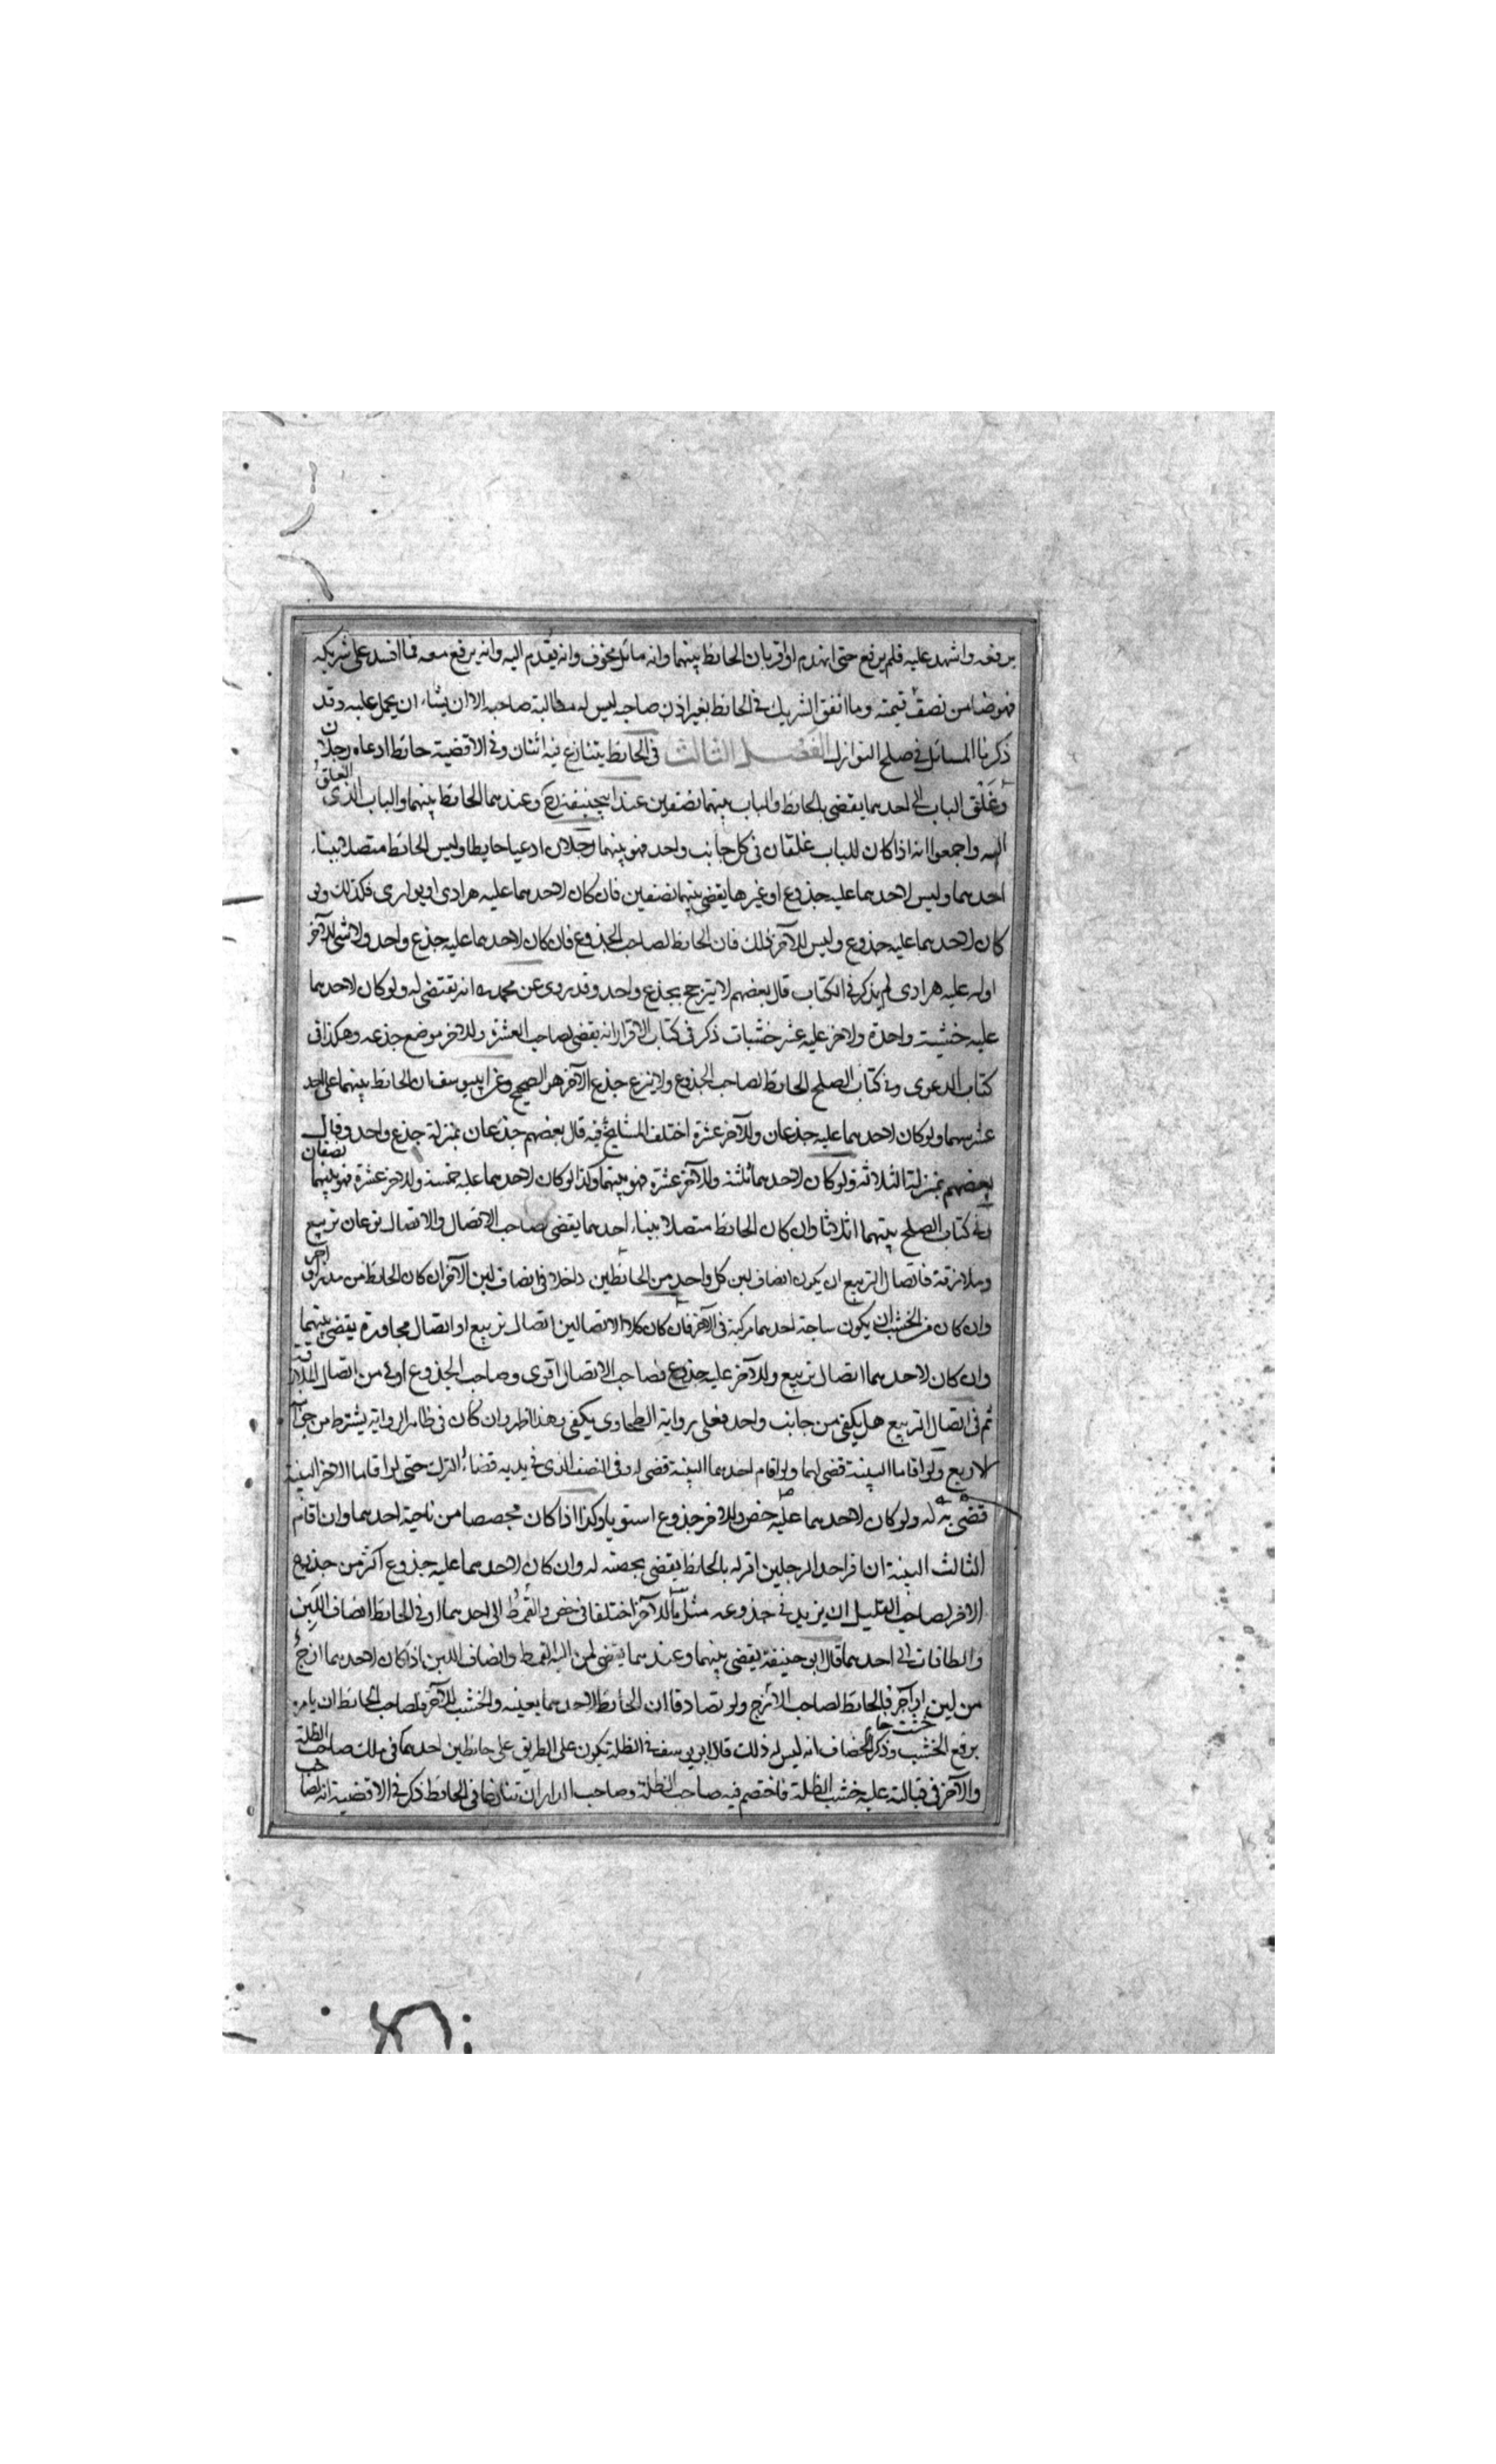 يرفعه واشهد عليه فلم يرفع حتى انهدم او اقر بان الحائط بينهما وانه مائل مخوف وانه يقدم اليه وانه يرفع معه فما افسد على شريكه
فهو ضامن نصف قيمته وما انفق الشريك في الحائط بغير اذن صاحبه ليس له مطالبة صاحبه الا ان يشاء ان يحمل عليه وقد
ذكرنا المسائل في صلح النوازل الفصل الثالث في الحائط يتنازع فيه اثنان وفي الاقضية حائط ادعاه رجلان
وغلق الباب الى احدهما يقضى بالحائط والباب بينهما نصفين عند ابيحنيفة رح وعندهما الحائط بينهما والباب الذي الغلق
اليه واجمعوا انه اذا كان للباب غلقان في كل جانب واحد فهو بينهما رجلان ادعيا حايطا وليس الحائط متصلا ببناء
احدهما وليس لاحدهما عليه جذوع او غيرها يقضى بينهما نصفين فان كان لاحدهما عليه هرادى او بوارى فكذلك ولو
كان لاحدهما عليه جذوع وليس للآخر ذلك فان الحائط لصاحب الجذوع فان كان لاحدهما عليه جذع واحد ولا شئ للآخر
اوله عليه هرادى لم يذكر في الكتاب قال بعضهم لا يترجح بجذع واحد وقد روى عن محمد انه يقتضى له ولو كان لاحدهما
عليه خشبة واحدة ولاخر عليه عشر خشبات ذكر في كتاب الاقرار انه يقضى لصاحب العشرة وللاخر موضع جذعه وهكذا في
كتاب الدعوى وفي كتاب الصلح الحائط لصاحب الجذوع ولا ينزع جذع الآخر هو الصحيح وعن ابييوسف ان الحائط بينهما على احد
عشر سهما ولو كان لاحدهما عليه جذعان وللآخر عشرة اختلف المشايخ فيه قال بعضهم جذعان بمنزلة جذع واحد وقال
بعضهم بمنزلة الثلاثة ولو كان لاحدهما ثلثة وللآخر عشرة فهو بينهما وكذا لو كان لاحدهما عليه خمسة وللاخر عشرة فهو بينهما نصفان
وفي كتاب الصلح بينهما اثلاثا وان كان الحائط متصلا ببناء احدهما يقضى لصاحب الاتصال والاتصال نوعان تربيع
وملازقة فاتصال التربيع ان يكون انصاف لبن كل واحد من الحائطين داخلا في انصاف لبن الآخر ان كان الحائط من مدر او آجر
وان كان من الخشب ان يكون ساجة احدهما مركبة في الآخر فان كان كلا الاتصالين اتصال تربيع او اتصال مجاورة يقضى بينهما
وان كان لاحدهما اتصال تربيع وللآخر عليه جذوع فصاحب الاتصال اقوى وصاحب الجذوع اولى من اتصال الملازقة
ثم في اتصال التربيع هل يكفى من جانب واحد فعلى رواية الطحاوى يكفى وهذا اظهر وان كان في ظاهر الرواية يشترط من جوانبه
الاربع ولو اقاما البينة قضى لهما ولو اقام احدهما البينة قضى له وفي النصف الذي في يديه قضاء الترك حتى لو اقاما الاخر البينة
قضى به له ولو كان لاحدهما عليه خص وللاخر جذوع استويا وكذا اذا كان مجصصا من ناحية احدهما وان اقام
الثالث البينة ان اقر احد الرجلين اقر له بالحائط يقضى بحصته له وان كان لاحدهما عليه جذوع اكثر من جذوع
الاخر لصاحب القليل ان يزيد في جذوعه مثل ما للآخر اختلفا في خص والقمط الى احدهما او في الحائط انصاف اللبن
والطاقات الى احدهما قال ابو حنيفة يقضى بينهما وعندهما يقضى لمن اليه القمط وانصاف اللبن اذا كان لاحدهما ازج
من لبن او آجر فالحائط لصاحب الازج ولو تصادقا ان الحائط لاحدهما بعينه والخشب للآخر فلصاحب الحائط ان يامره
برفع الخشب وذكر الخصاف انه ليس له ذلك قال ابو يوسف في الظلة تكون على الطريق على حائطين احدهما في ملك صاحب الظلة
والآخر في قبالته عليه خشب الظلة فاختصم فيه صاحب الظلة وصاحب الدار ان تنازعا في الحائط ذكر في الاقضية انه لصاحب